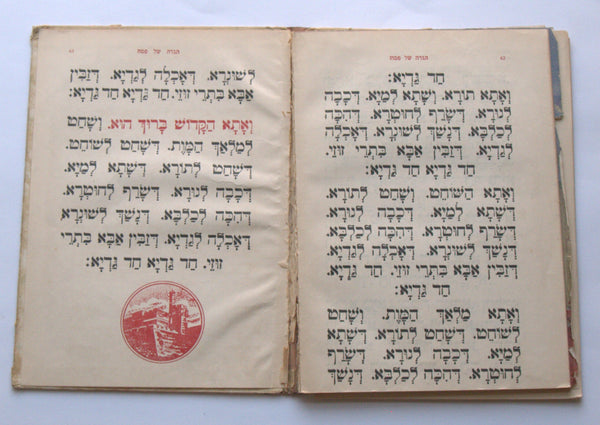 42 הגדה של פסח
חַד גַּדְיָא:
וְאָתָא תוֹרָא. וְשָׁתָא לְמַיָא. דְּכָבָה
לְנוּרָא. דְּשָׂרַף לְחוּטְרָא. דְּהִכָּה
לְכַלְבָּא. דְּנָשַׁךְ לְשׁוּנְרָא. דְּאָכְלָה
לְגַדְיָא. דְּזַבִּין אַבָּא בִּתְרֵי זוּזֵי.
חַד גַּדְיָא חַד גַּדְיָא:
וְאָתָא הַשּׁוֹחֵט. וְשָׁחַט לְתוֹרָא.
דְּשָׁתָא לְמַיָא. דְּכָבָה לְנוּרָא.
דְּשָׂרַף לְחוּטְרָא. דְּהִכָּה לְכַלְבָּא.
דְּנָשַׁךְ לְשׁוּנְרָא. דְּאָכְלָה לְגַדְיָא.
דְּזַבִּין אַבָּא בִּתְרֵי זוּזֵי. חַד גַּדְיָא
חַד גַּדְיָא:
וְאָתָא מַלְאַךְ הַמָּוֶת. וְשָׁחַט
לְשׁוֹחֵט. דְּשָׁחַט לְתוֹרָא. דְּשָׁתָא
לְמַיָא. דְּכָבָה לְנוּרָא. דְּשָׂרַף
לְחוּטְרָא. דְּהִכָּה לְכַלְבָּא. דְּנָשַׁךְ
הגדה של פסח 43
לְשׁוּנְרָא. דְּאָכְלָה לְגַדְיָא. דְּזַבִּין
אַבָּא בִּתְרֵי זוּזֵי. חַד גַּדְיָא חַד גַּדְיָא:
וְאָתָא הַקָּדוֹשׁ בָּרוּךְ הוּא. וְשָׁחַט
לְמַלְאַךְ הַמָּוֶת. דְּשָׁחַט לְשׁוֹחֵט.
דְּשָׁחַט לְתוֹרָא. דְּשָׁתָא לְמַיָא.
דְּכָבָה לְנוּרָא. דְּשָׂרַף לְחוּטְרָא.
דְּהִכָּה לְכַלְבָּא. דְּנָשַׁךְ לְשׁוּנְרָא
דְּאָכְלָה לְגַדְיָא. דְּזַבִּין אַבָּא בִּתְרֵי
זוּזֵי. חַד גַּדְיָא חַד גַּדְיָא: